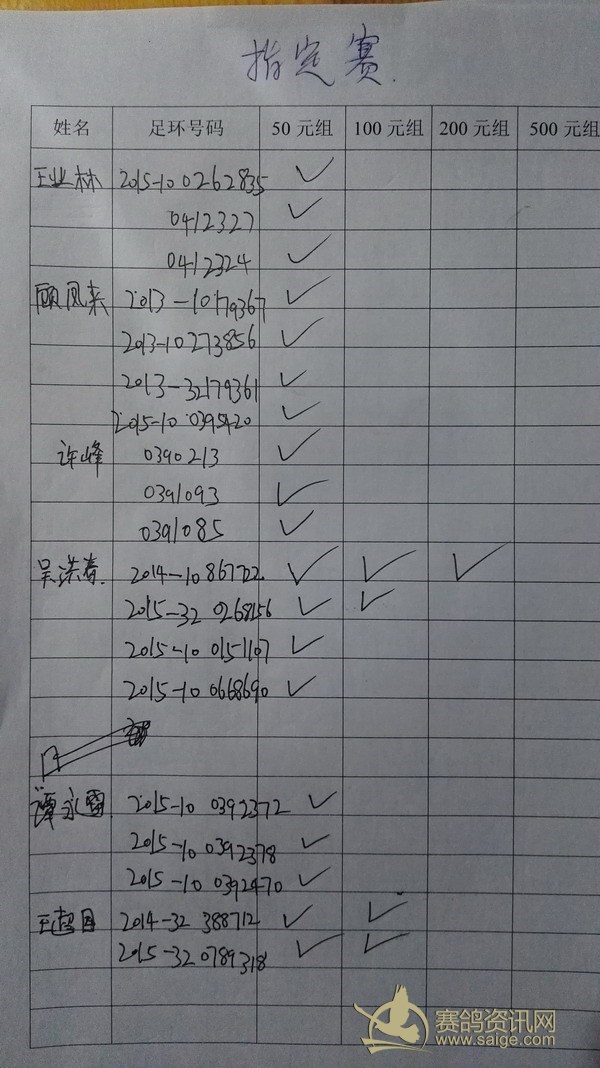 指定赛
姓名 足环号码 50元组 100元组 200元组 500元组
王业林 2015-10 0262835 ✓
0412327 ✓
0412324 ✓
顾凤来 2013-10179367 ✓
2013-10273856 ✓
2013-32179361 ✓
2015-10 0395420 ✓
许峰 0390213 ✓
0391093 ✓
0391085 ✓
吴洪春 2014-10 867722 ✓ ✓ ✓
2015-32 0268156 ✓ ✓
2015-10 0151107 ✓
2015-10 0668690 ✓
谭永国 2015-10 0392372 ✓
2015-10 0392378 ✓
2015-10 0392470 ✓
2014-32 388712 ✓ ✓
2015-32 0789318 ✓ ✓
赛鸽资讯网
www.saige.com